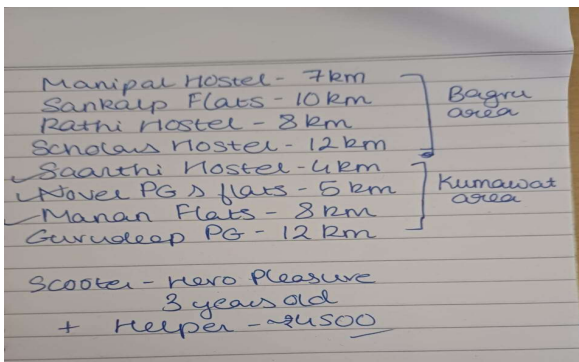 Manipal Hostel - 7 km
Sankalp Flats - 10 km
Rathi Hostel - 8 km
Scholars Hostel - 12 km
Bagru area
Saarthi Hostel - 4 km
Novel PG s flats - 5 km
Manan Flats - 8 km
Gurudeep PG - 12 km
Kumawat area
Scooter - Hero Pleasure
3 years old
+ Helper - ₹4500